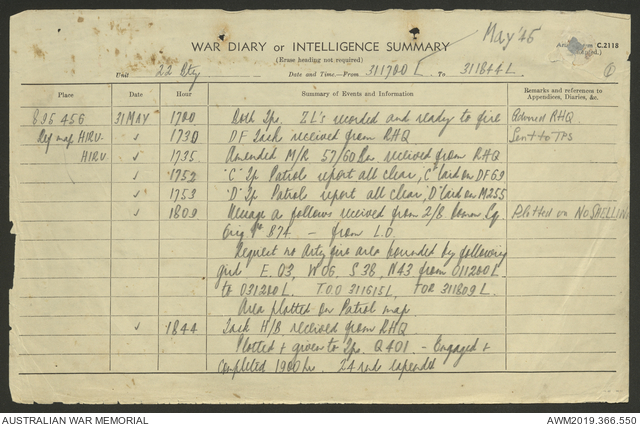 May '45
Army Form C.2118
WAR DIARY or INTELLIGENCE SUMMARY
(Erase heading not required)
Unit 22 Bty Date and Time—From 311700 L To 311844 L
Place Date Hour Summary of Events and Information Remarks and references to Appendices, Diaries, &c.
835456 31 MAY 1700 Both Tps. ZL's recorded and ready to fire RHQ
Ref map HIRU ✓ 1730 DF Task received from RHQ Sent to TPS
HIRU ✓ 1735 Amended M/R 57/60 received from RHQ
✓ 1752 "C" Tp Patrols report all clear, "C" laid on DF 69
✓ 1753 "D" Tp Patrols report all clear, "D" laid on M255
✓ 1809 Message as follows received from 2/8 Comm Sq Plotted on No SHELLING
Orig No 874 - from L.O
Request no Arty fire area bounded by following
grid E.03, W 06, S 38, N43 from 011200L
to 031200L. TOO 311615L, TOR 311809L.
Area plotted on Patrol map
✓ 1844 Task H/B received from RHQ
Plotted & given to Tps. Q401 - Engaged &
completed 1900 hr. 24 rds expended
AUSTRALIAN WAR MEMORIAL
AWM2019.366.550